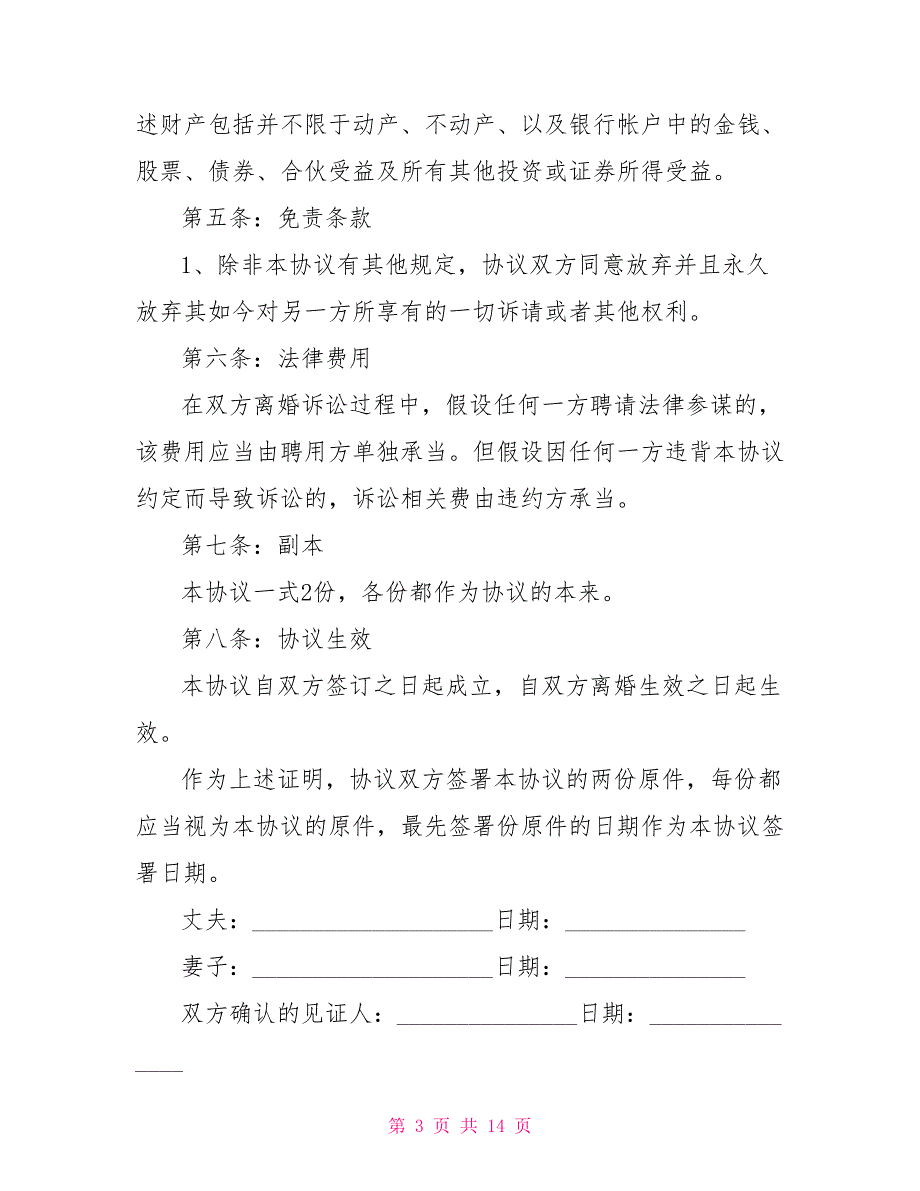 述财产包括并不限于动产、不动产、以及银行帐户中的金钱、
股票、债券、合伙受益及所有其他投资或证券所得受益。
第五条：免责条款
1、除非本协议有其他规定，协议双方同意放弃并且永久
放弃其如今对另一方所享有的一切诉请或者其他权利。
第六条：法律费用
在双方离婚诉讼过程中，假设任何一方聘请法律参谋的，
该费用应当由聘用方单独承当。但假设因任何一方违背本协议
约定而导致诉讼的，诉讼相关费由违约方承当。
第七条：副本
本协议一式2份，各份都作为协议的本来。
第八条：协议生效
本协议自双方签订之日起成立，自双方离婚生效之日起生
效。
作为上述证明，协议双方签署本协议的两份原件，每份都
应当视为本协议的原件，最先签署份原件的日期作为本协议签
署日期。
丈夫：____________________日期：_______________
妻子：____________________日期：_______________
双方确认的见证人：_______________日期：___________
____
第 3 页 共 14 页